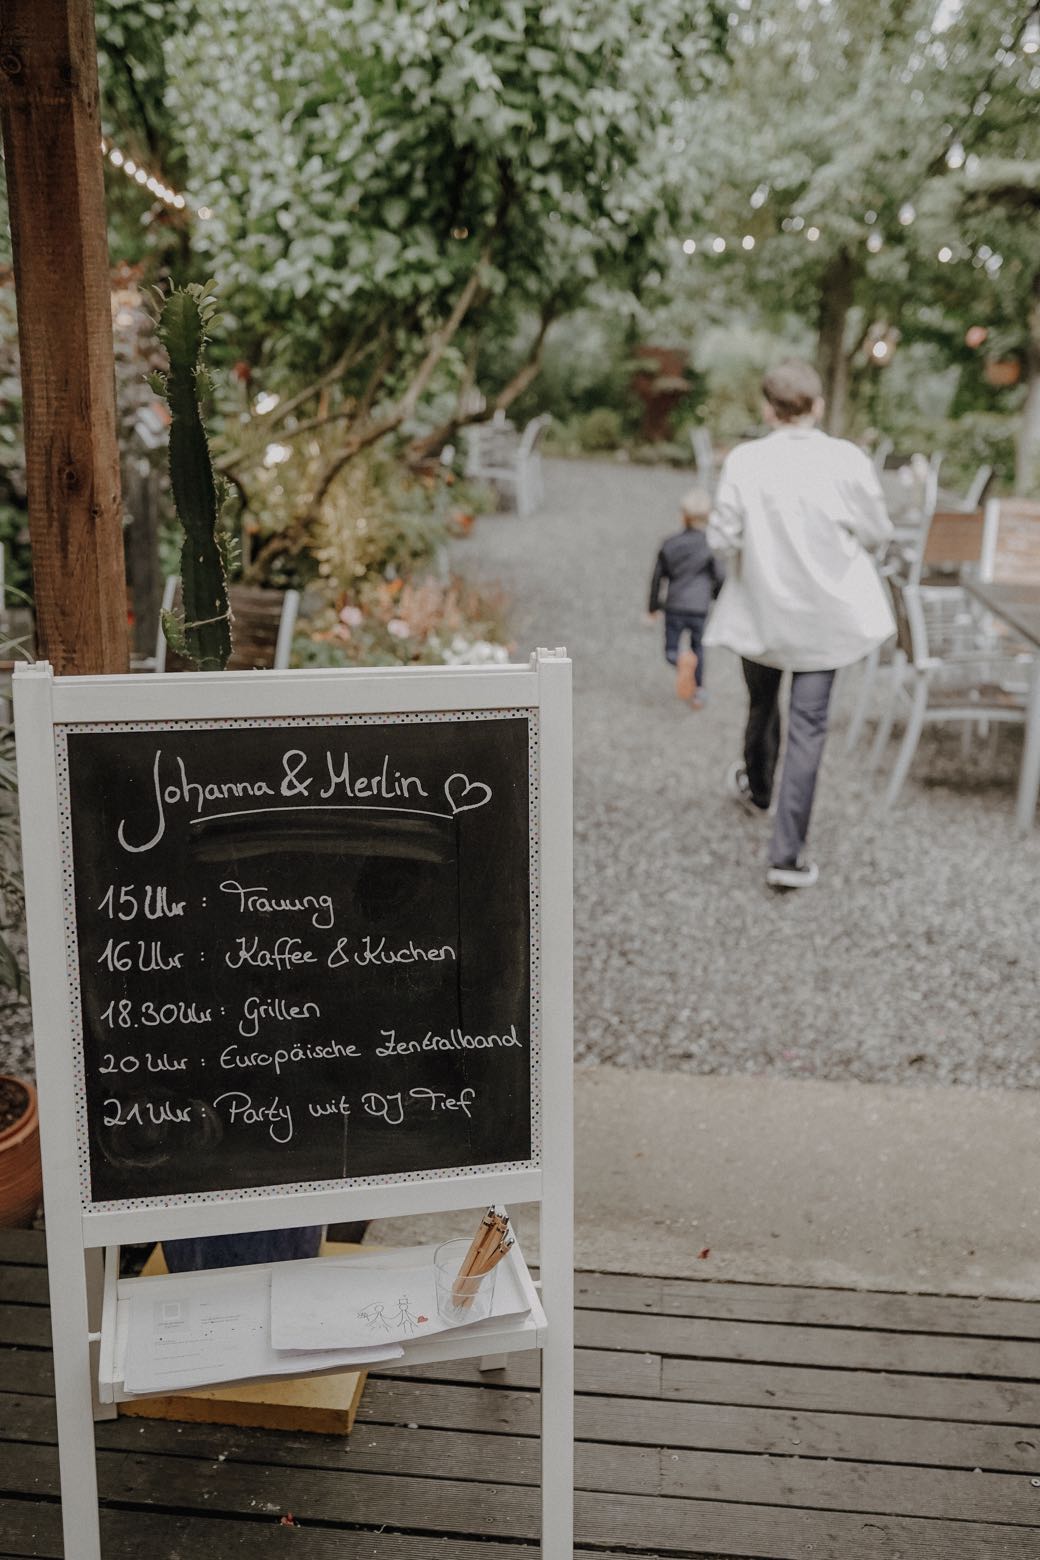 Johanna & Merlin
15 Uhr : Trauung
16 Uhr : Kaffee & Kuchen
18.30 Uhr : Grillen
20 Uhr : Europäische Zentralband
21 Uhr : Party mit DJ Tief